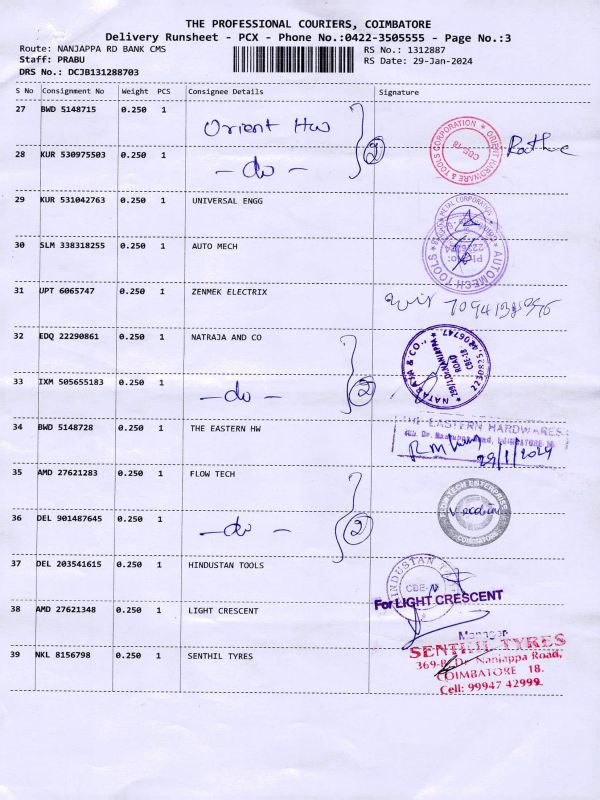 THE PROFESSIONAL COURIERS, COIMBATORE
Delivery Runsheet - PCX - Phone No.:0422-3505555 - Page No.:3
Route: NANJAPPA RD BANK CMS
RS No.: 1312887
Staff: PRABU
RS Date: 29-Jan-2024
DRS No.: DCJB131288703
S No Consignment No Weight PCS Consignee Details Signature
27 BWD 5148715 0.250 1 Orient HW
28 KUR 530975503 0.250 1 -do- 2
ORIENT HARDWARE & TOOLS CORPORATION
CBE-18
29 KUR 531042763 0.250 1 UNIVERSAL ENGG
METAL CORPORATION
30 SLM 338318255 0.250 1 AUTO MECH
AUTOMECH TOOLS
31 UPT 6065747 0.250 1 ZENMEK ELECTRIX
32 EDQ 22290861 0.250 1 NATRAJA AND CO
33 IXM 505655183 0.250 1 -do- 2
NATARAJA & CO.
NANJAPPA
ROAD
CBE-18
34 BWD 5148728 0.250 1 THE EASTERN HW
EASTERN HARDWARES
29/1/2024
35 AMD 27621283 0.250 1 FLOW TECH
36 DEL 901487645 0.250 1 -do- 2
FLOWTECH ENTERPRISE
COIMBATORE
37 DEL 203541615 0.250 1 HINDUSTAN TOOLS
HINDUSTAN
CBE-
38 AMD 27621348 0.250 1 LIGHT CRESCENT
For LIGHT CRESCENT
Manager
39 NKL 8156798 0.250 1 SENTHIL TYRES
SENTHIL TYRES
369-B, Dr. Nanjappa Road,
COIMBATORE 18.
Cell: 99947 42999.